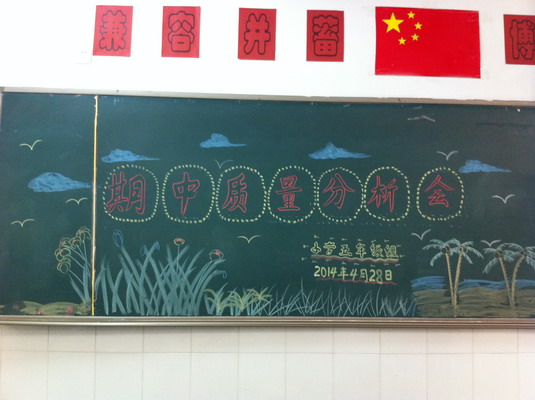 兼容并蓄 博
期中质量分析会
小学五年级组
2014年4月28日